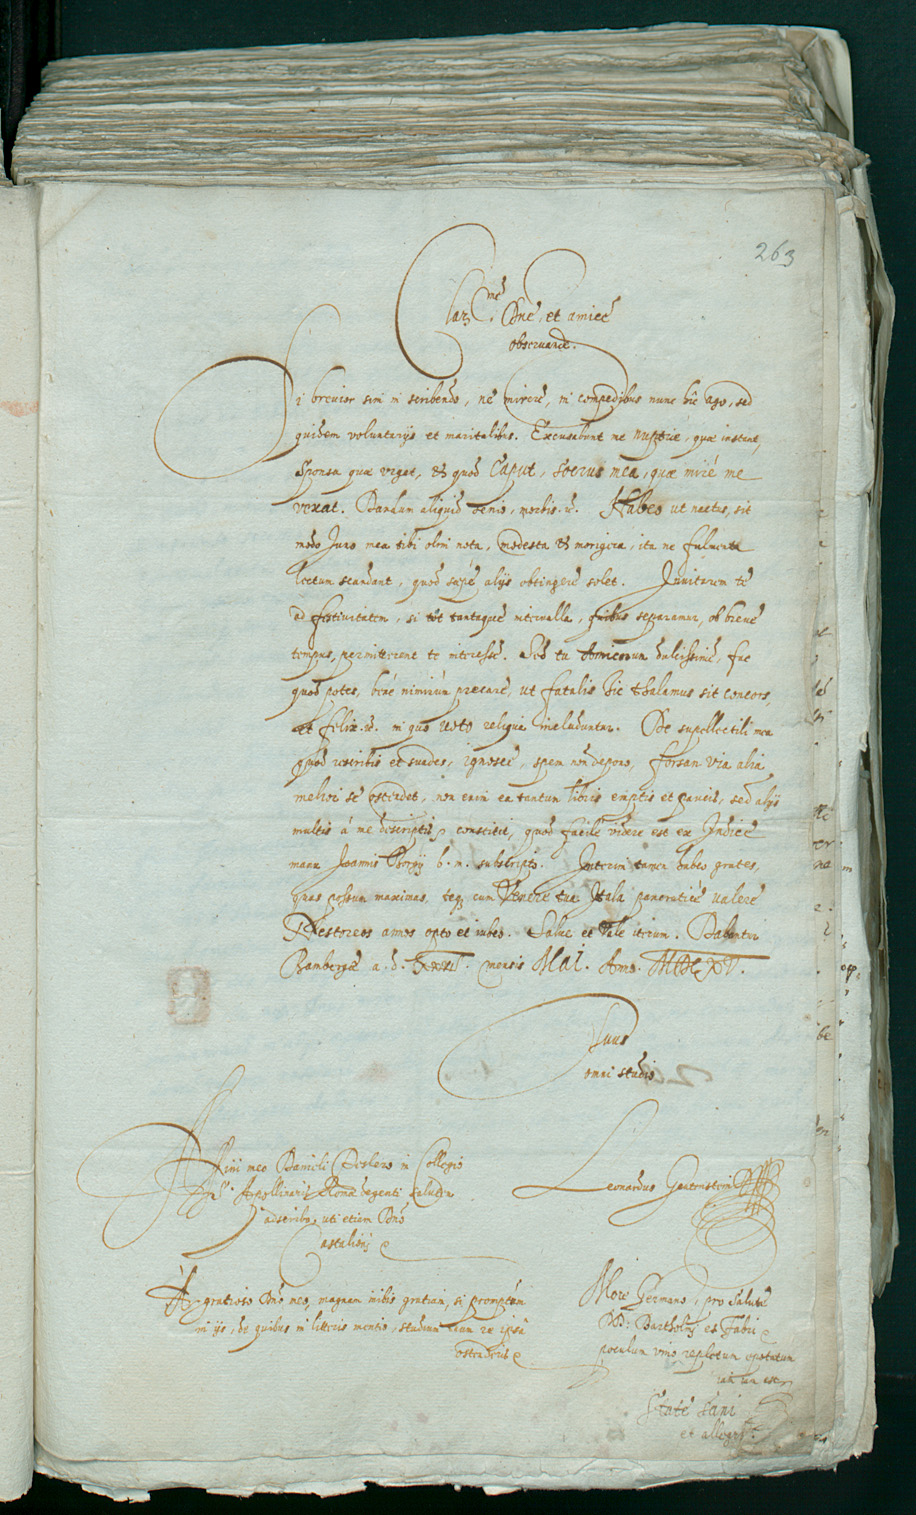 263
Clar.me Dne, et amice
observande.
Si brevior sim in scribendo, ne mirere, in compedibus nunc hic ago, sed
quidem voluntarijs et maritalibus. Excusabunt me nuptiae, quae instant,
Sponsa quae urget, et quod Caput, Socrus mea, quae mire me
vexat. Dandum aliquid senio, morbis. Habeo ut nactus sit
modo Juno mea tibi olim nota, modesta et morigera, ita ne fulmenta
lectum scandant, quod saepe alijs obtingere solet. Invitarem te
ad festivitatem, si tot tantaque intervalla, quibus separamur, ob breve
tempus, permitterent te interesse. Sed tu Amicorum dulcissime, fac
quod potes, bene nimirum precare, ut fatalis hic thalamus sit concors,
et felix. in quo voto reliqua includuntur. De supellectili mea
quod rescribis et suades, ignosce, spem non depono, forsan via alia
meliori se ostendet, non enim ea tantum libris emptis et paucis, sed alijs
multis à me descriptis constitit, quod facile videre est ex Indice
manu Joannis b. m. subscripto. Interim tamen habeo grates,
quas possum maximas, teque cum Venere tua Itala pancratice valere
Nestoreos annos opto et iubeo. Salve et Vale iterum. Dabantur
Bambergae a. d. mensis Maj. Anno. MDCXV.
Tuus
omni studio
Leonardus
meo Danieli in Collegio
Apollinaris Romae degenti Salutem
adscribo, uti etiam Dno
Castalioni
gratioso Dno meo, magnam inibis gratiam, si promptum
in ijs, de quibus in litteris mentio, studium tuum re ipsa
ostenderis
More Germano, pro salute
DD: Bartholij et Fabri
poculum vino repletum epotatum
iam iam est
State sani
et allegri.